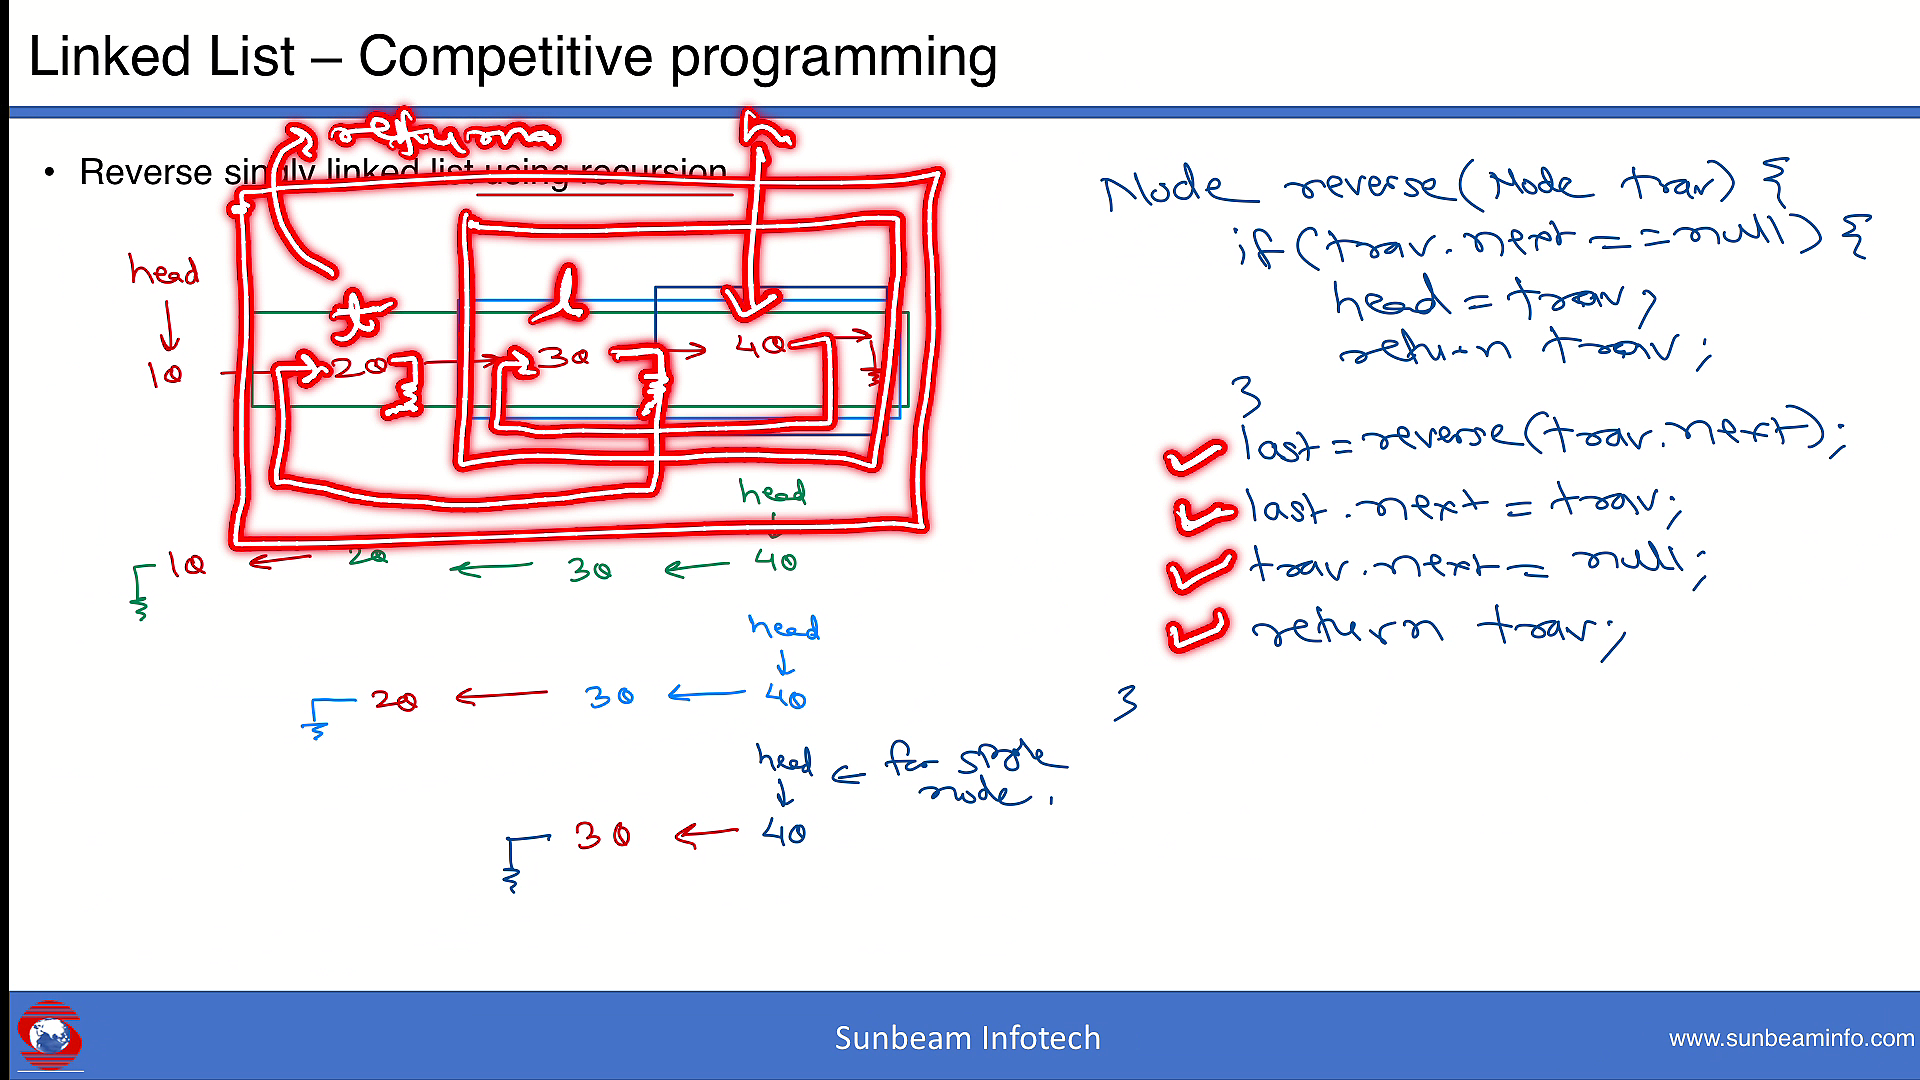 Linked List – Competitive programming
returns
h
• Reverse singly linked list using recursion
head
t
l
10 20 30 40
head
10 20 30 40
head
20 30 40
head ← for single
node.
30 40
Node reverse(Node trav) {
if(trav.next==null) {
head = trav;
return trav;
}
last=reverse(trav.next);
last.next = trav;
trav.next = null;
return trav;
}
Sunbeam Infotech
www.sunbeaminfo.com